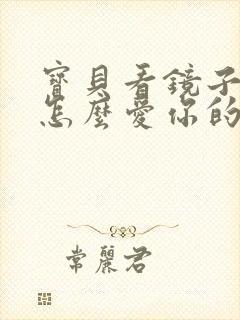 寶貝看鏡子
怎麼愛你的
常麗君